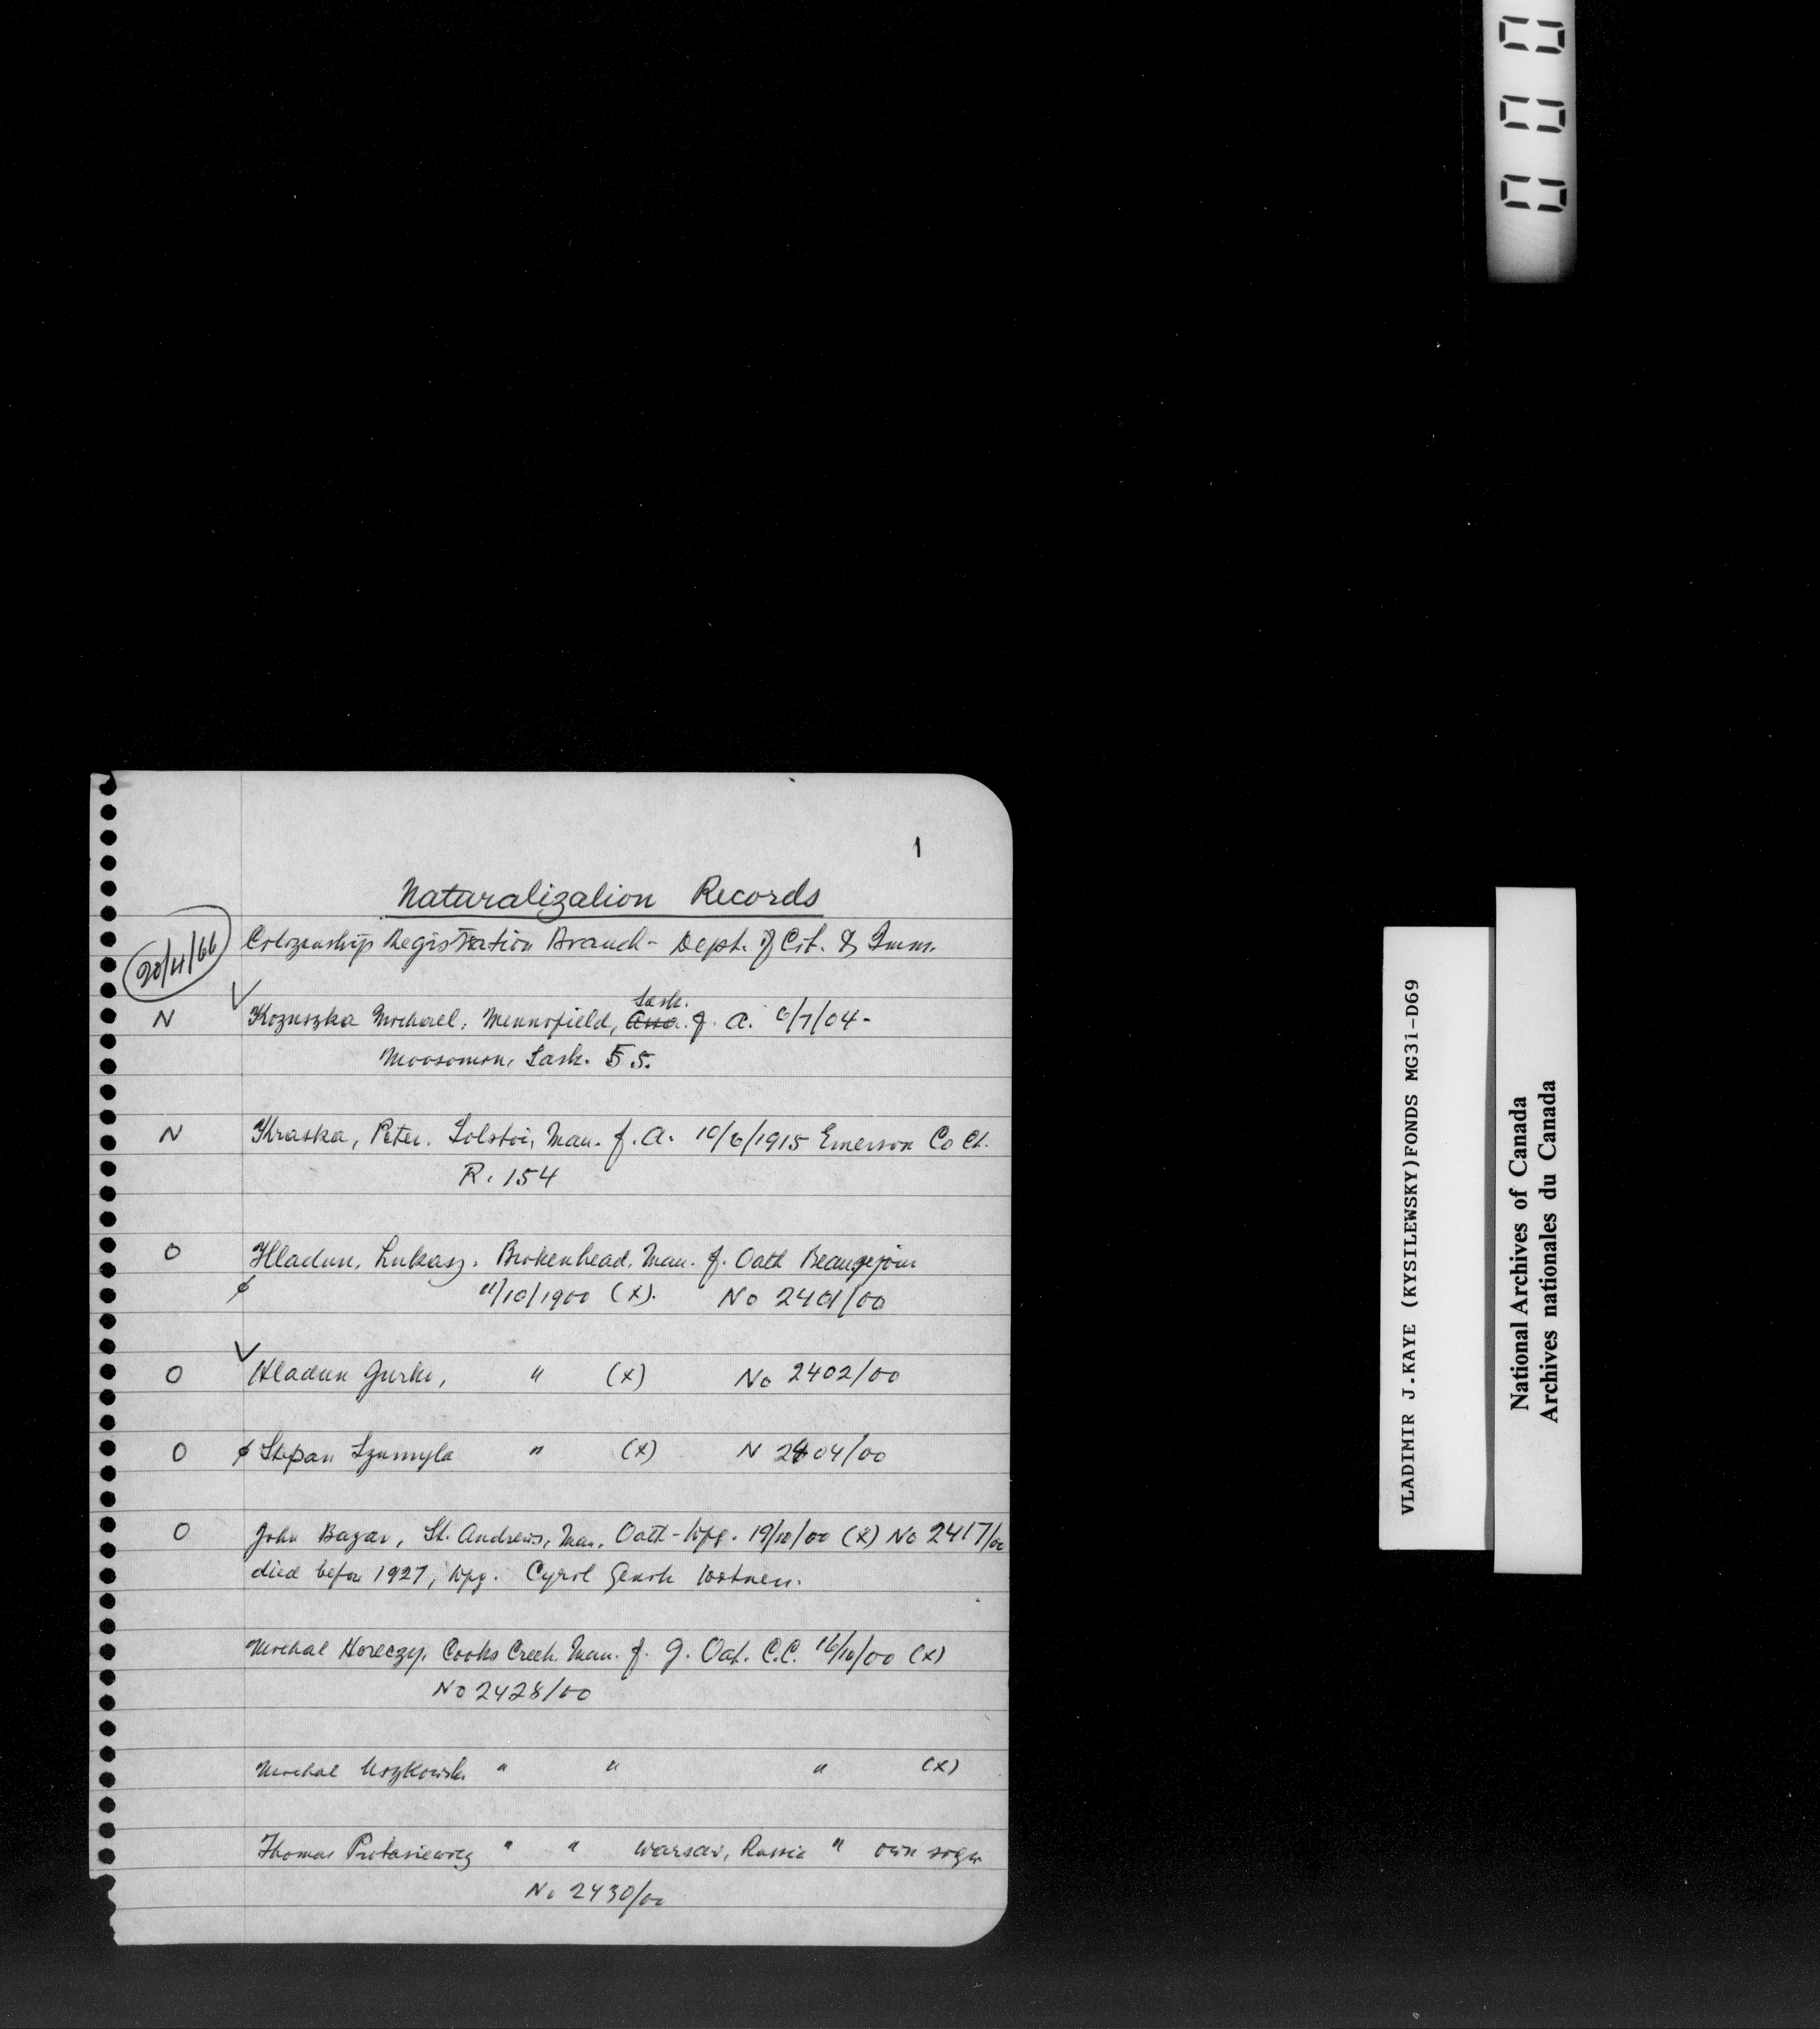 000
1
Naturalization Records
20/4/66
Citizenship Registration Branch - Dept. of Cit. & Imm.
N Kozuszka Michael, Mennofield, Sask. f. A. 6/7/04 -
Moosomin, Sask. 55.
N Kraska, Peter. Tolstoi, Man. f. A. 10/6/1915 Emerson Co Ct.
R. 154
O Hladun, Lukasz. Brokenhead, Man. f. Oath Beausejour
11/10/1900 (x). No 2401/00
O Hladun Jurko, " (x) No 2402/00
O Stepan Szumyla " (x) N 2404/00
O John Bazar, St. Andrews, Man. Oath - Wpg. 19/10/00 (x) No 2417/00
died before 1927, Wpg. Cyril Genik witness.
Michal Horeczy, Cooks Creek, Man. f. g. Oat. C.C. 16/10/00 (x)
No 2428/00
Michal Uszkowski " " " (x)
Thomas Protasiewicz " " Warsaw, Russia " own sign
No 2430/00
VLADIMIR J.KAYE (KYSILEWSKY)FONDS MG31-D69
National Archives of Canada
Archives nationales du Canada